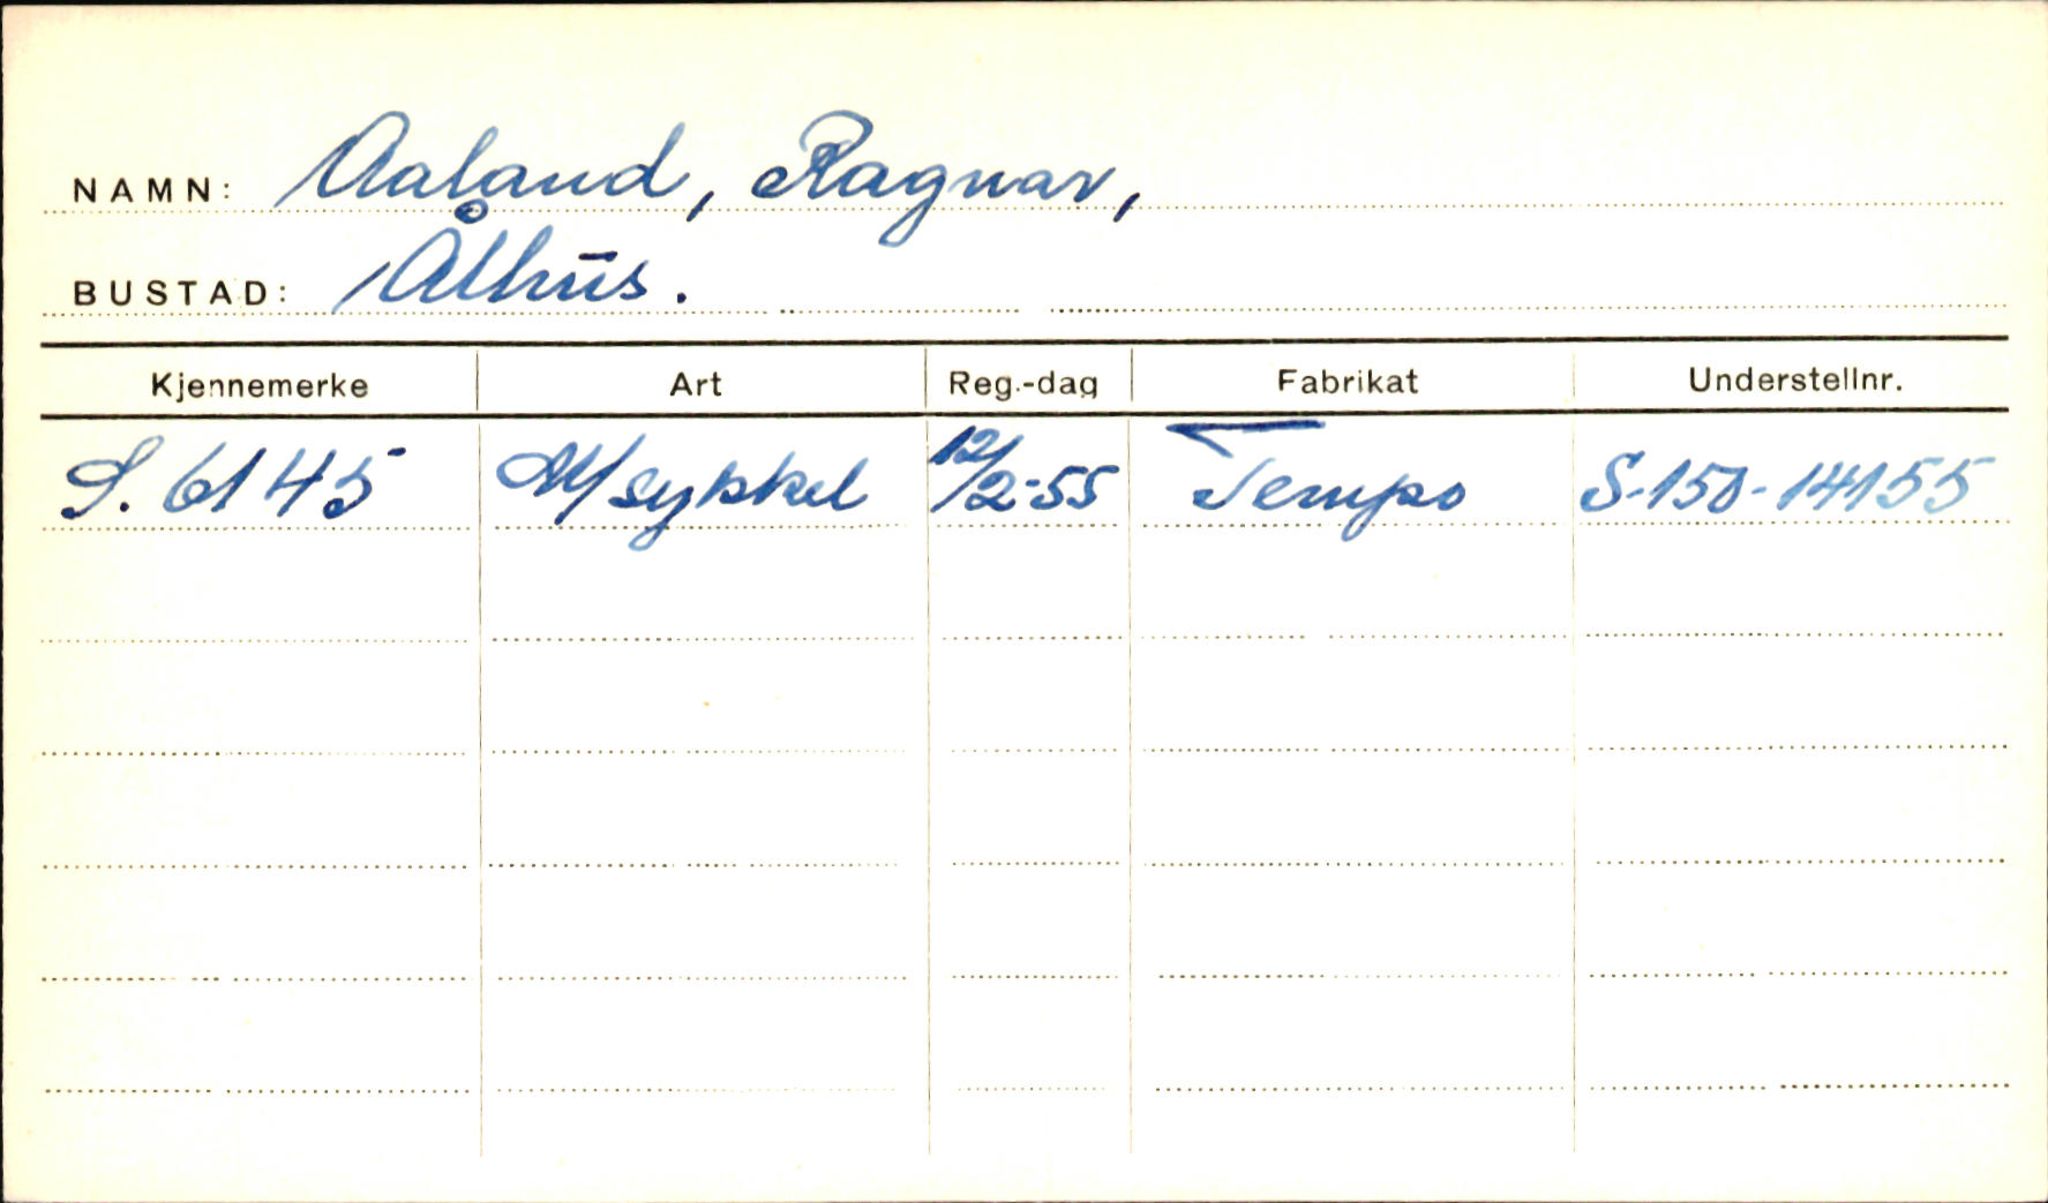 NAMN: Aaland, Ragnar,
BUSTAD: Ålhus.
Kjennemerke Art Reg.-dag Fabrikat Understellnr.
S. 6145 M/sykkel 12/2-55 Tempo S-150-14155